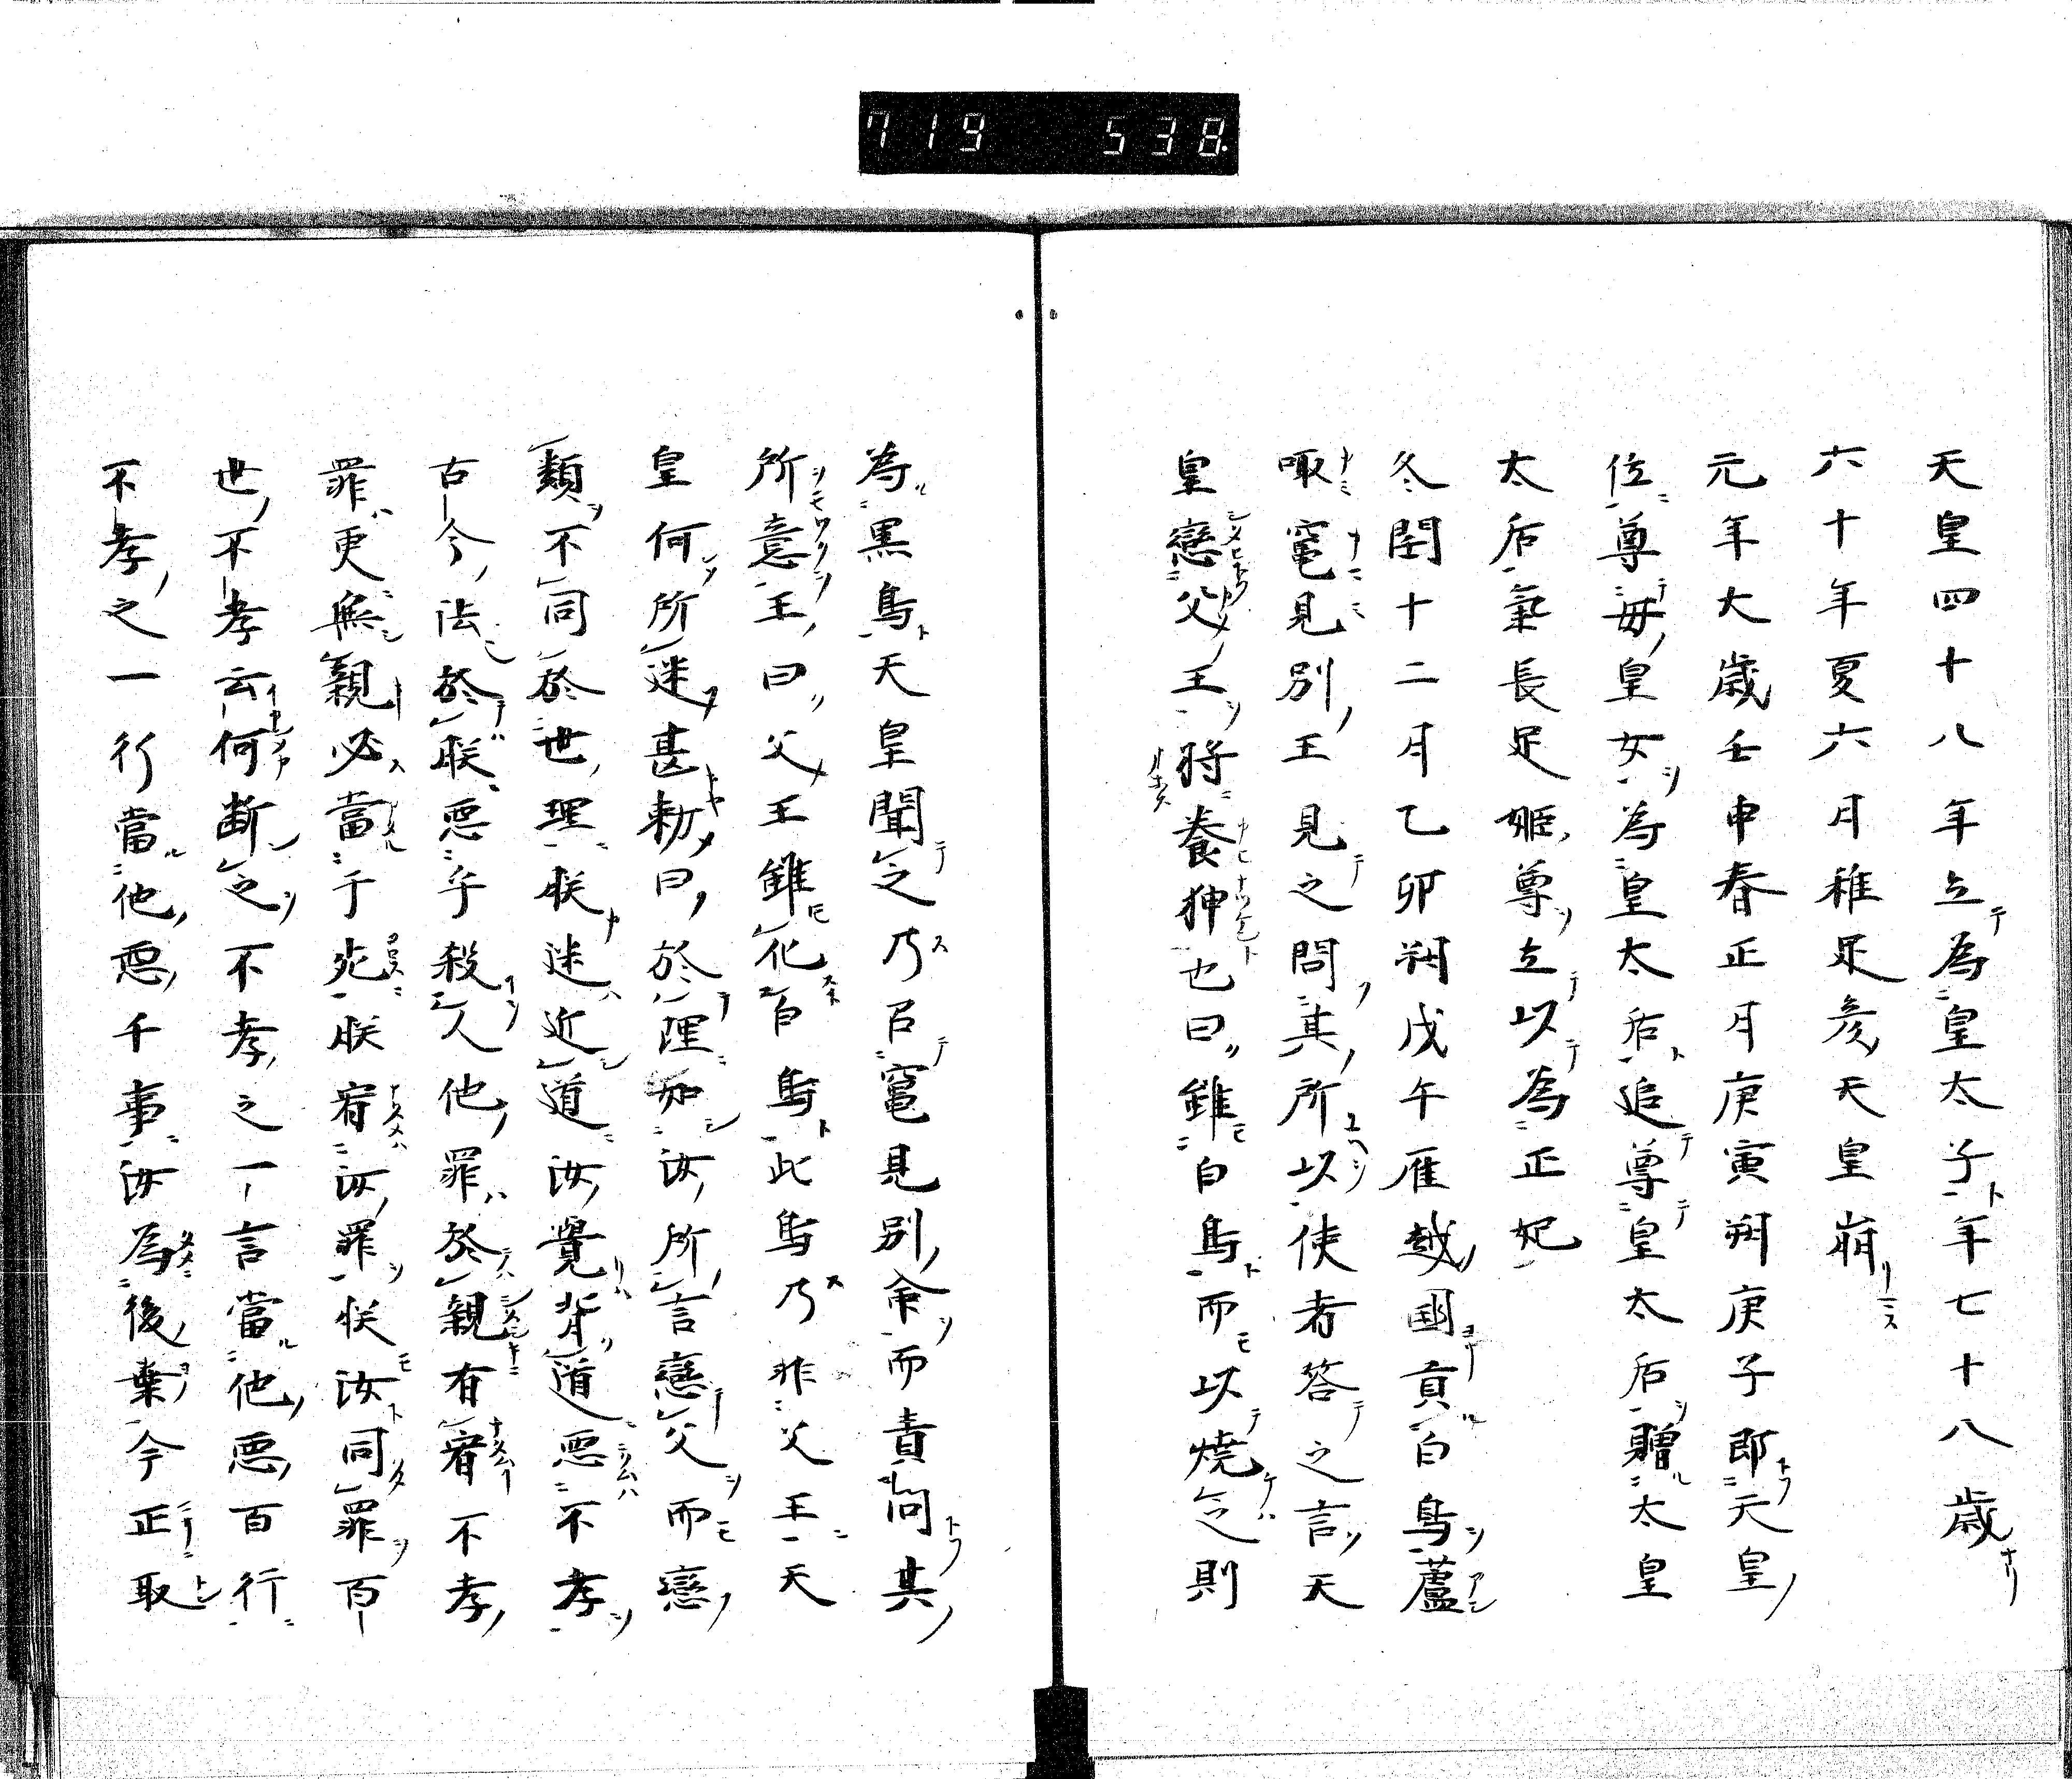 719 538
天皇四十八年立為皇太子年七十八歳
六十年夏六月稚足彦天皇崩
元年大歳壬申春正月庚寅朔庚子即天皇
位尊母皇女為皇太后追尊皇太后贈太皇
太后氣長足姫尊立以為正妃
冬閏十二月乙卯朔戊午雁越國貢白鳥蘆
㖨竃見別王見之問其所以使者答之言天
皇戀父王將養狎也曰雖白鳥而以燒之則
為黒鳥天皇聞之乃召竃見別命而責問其
所意王曰父王雖化白鳥此鳥乃非父王天
皇何所迷甚勅曰於理如汝所言戀父而戀
類不同於世理朕迷近道汝覺背道惡不孝
古今法於朕惡乎殺人他罪於親有宥不孝
罪更無親必當于死朕宥汝罪朕汝同罪百
世不孝云何断之不孝之一言當他惡百行
不孝之一行當他惡千事汝為後棄今正取